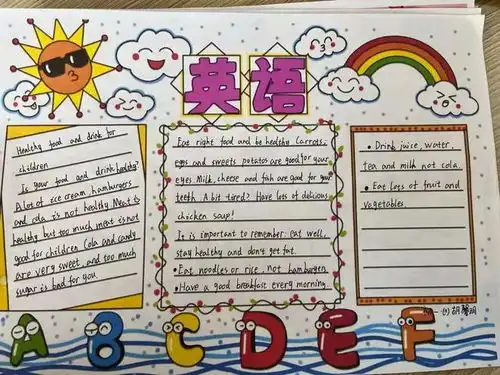 英语
Healthy food and drink for
children
Is your food and drink healthy?
A lot of ice cream hamburgers
and cola is not healthy Meat is
healthy but too much meat is not
good for children Cola and candy
are very sweet, and too much
sugar is bad for you
Eat right food and be healthy Carrots,
eggs and sweets potatos are good for your
eyes. Milk, cheese and fish are good for your
teeth. A bit tired? Have lots of delicious
chicken soup!
It is important to remember: eat well,
stay healthy and don't get fat.
• Eat noodles or rice, not hamburgen
• Have a good breakfast every morning.
• Drink juice, water,
tea and milk not cola.
• Eat lots of fruit and
vegetables
A B C D E F